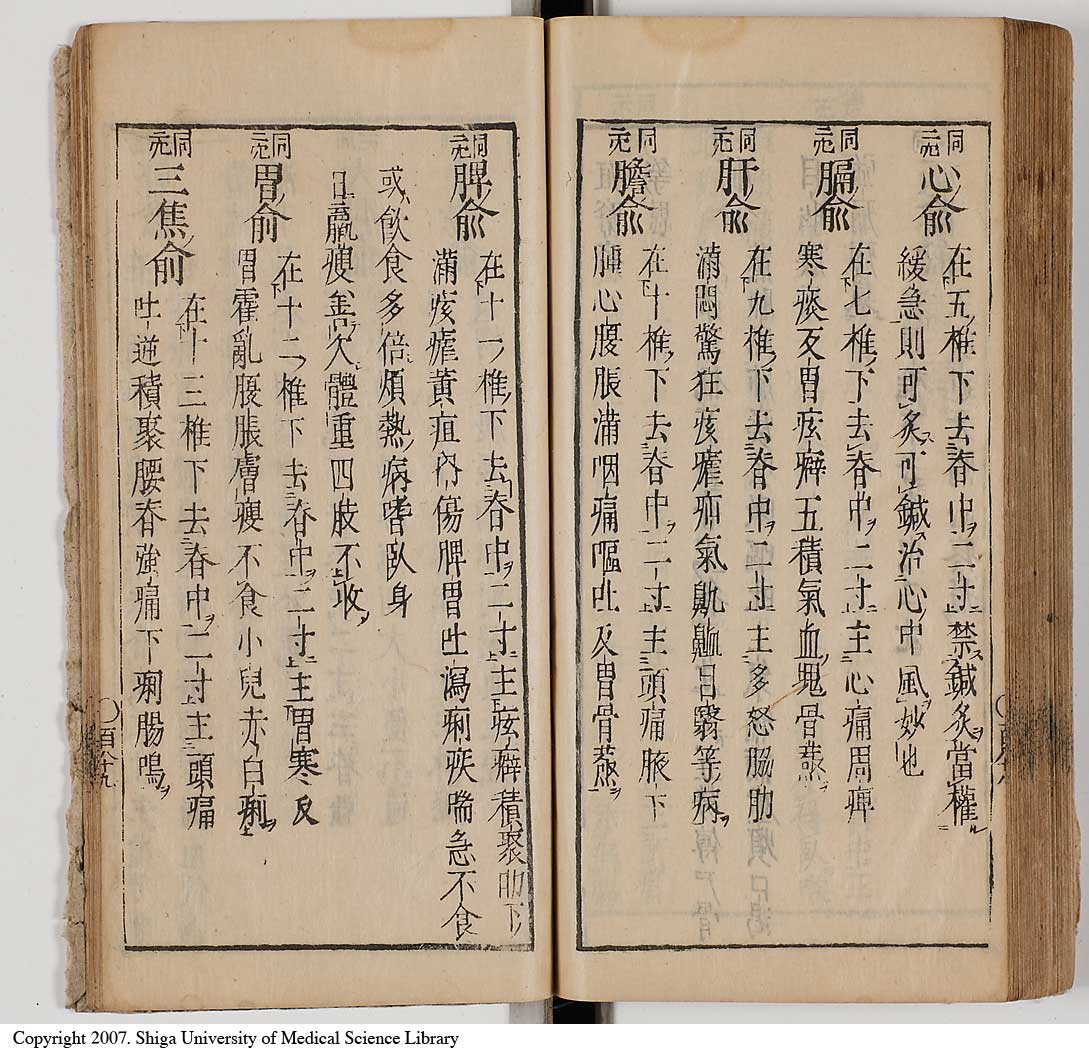 同二穴
心俞
在五椎下去脊中二寸禁鍼灸當權
緩急則可灸可鍼治心中風妙也
同二穴
膈俞
在七椎下去脊中二寸主心痛周痺
寒痰反胃痃癖五積氣血塊骨蒸
同二穴
肝俞
在九椎下去脊中二寸主多怒脇肋
滿悶驚狂痎瘧疝氣鼽衄目翳等病
同二穴
膽俞
在十椎下去脊中二寸主頭痛腋下
腫心腹脹滿咽痛嘔吐反胃骨蒸
同二穴
脾俞
在十一椎下去脊中二寸主痃癖積聚肋下
滿痎瘧黃疸內傷脾胃吐瀉痢疾喘急不食
或飲食多倍煩熱病嗜臥身
日羸瘦善欠體重四肢不收
同二穴
胃俞
在十二椎下去脊中二寸主胃寒反
胃霍亂腹脹膚瘦不食小兒赤白痢
同二穴
三焦俞
在十三椎下去脊中二寸主頭痛
吐逆積聚腰脊強痛下痢腸鳴
百八十九
Copyright 2007. Shiga University of Medical Science Library